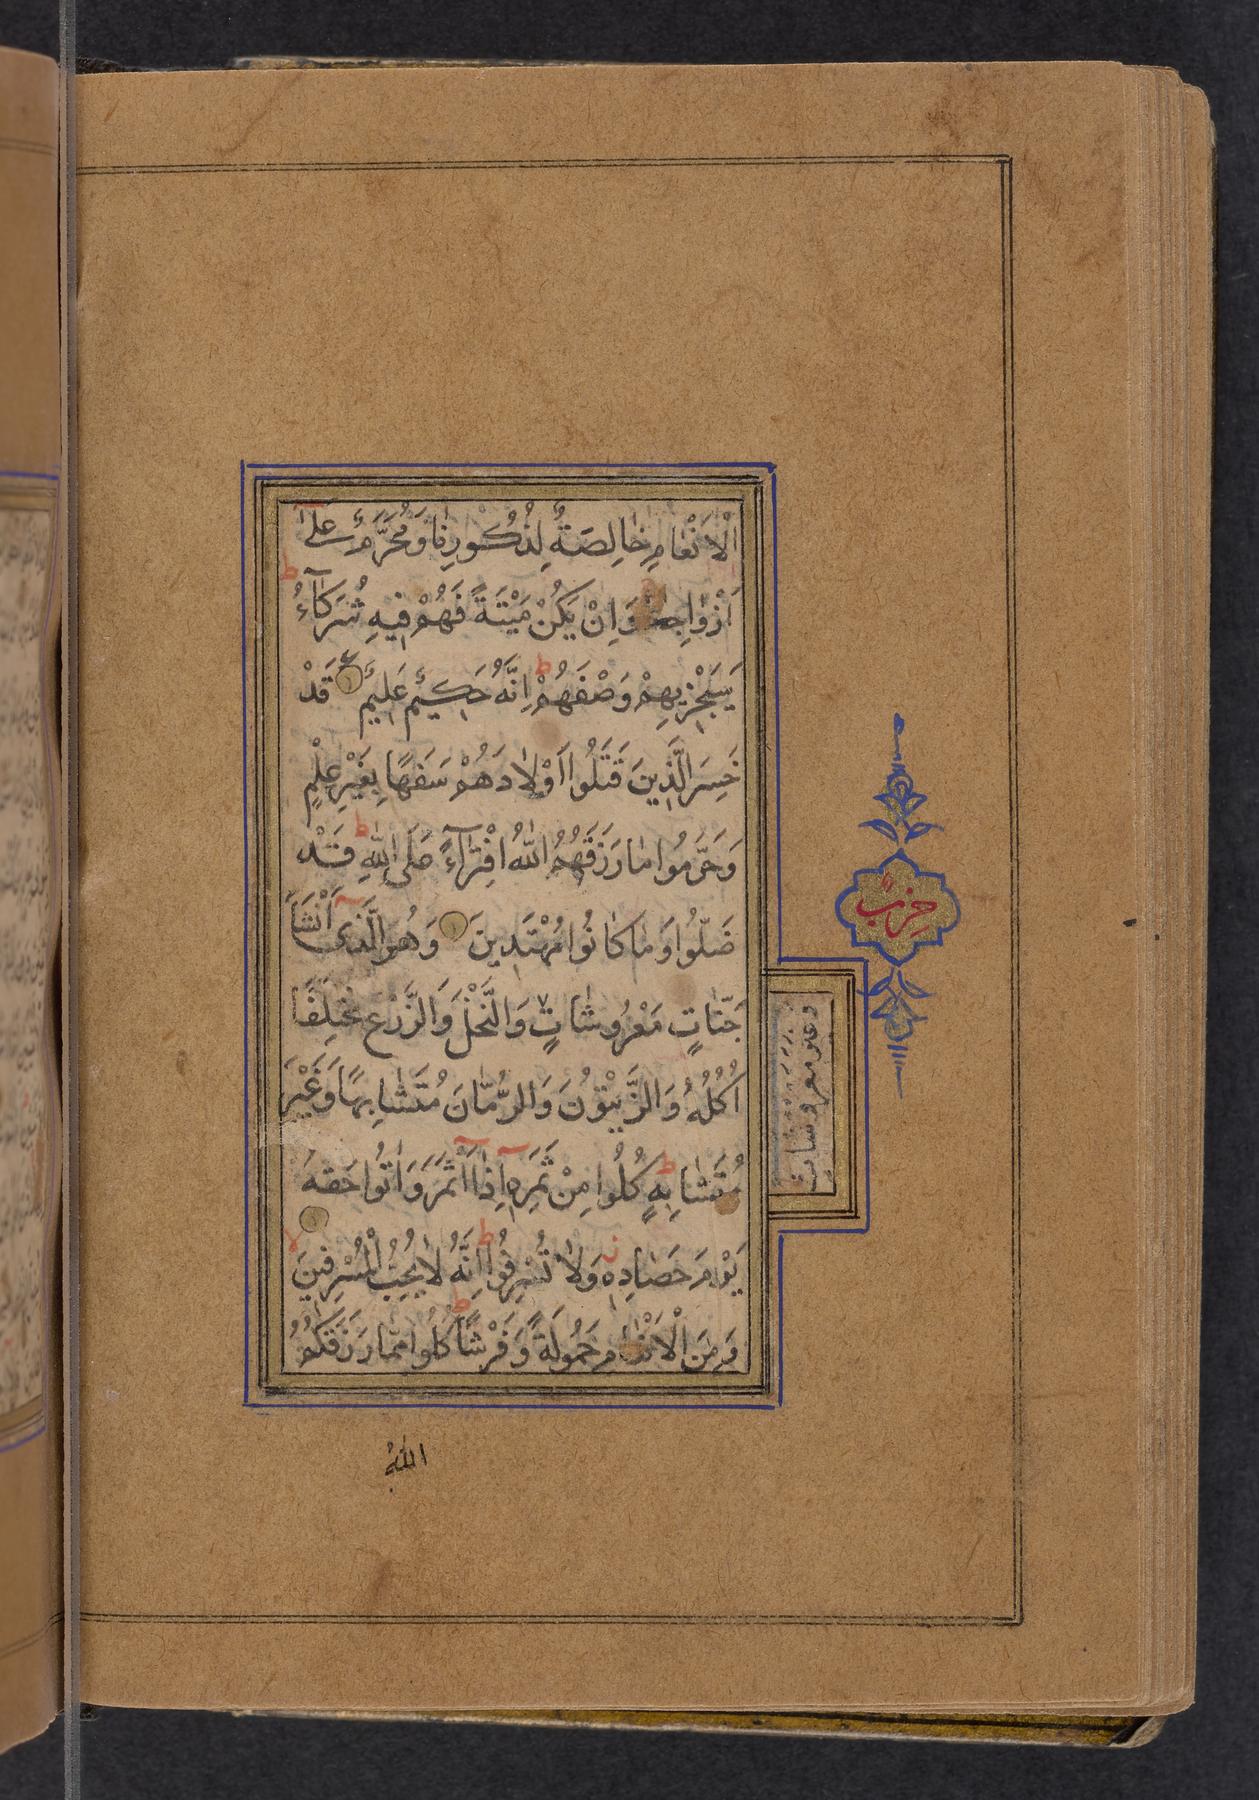 الْاَنْعٰامِ خٰالِصَةٌ لِذُكُورِنٰا وَمُحَرَّمٌ عَلىٰٓ
اَزْوٰاجِنٰا وَاِنْ يَكُنْ مَيْتَةً فَهُمْ فيهِ شُرَكٰٓاءُ ط
سَيَجْزيهِمْ وَصْفَهُمْ ط اِنَّهُ حَكيٌم عَليٌم قَدْ
خَسِرَ الَّذينَ قَتَلُوا اَوْلٰادَهُمْ سَفَهًا بِغَيْرِ عِلْمٍ
وَحَرَّمُوا مٰا رَزَقَهُمُ اللّٰهُ افْتِرٰٓاءً عَلَى اللّٰهِ ط قَدْ
ضَلُّوا وَمٰا كٰانُوا مُهْتَدينَ وَهُوَ الَّذىٓ اَنْشَاَ
جَنّٰاتٍ مَعْرُوشٰاتٍ وَالنَّخْلَ وَالزَّرْعَ مُخْتَلِفًا
اُكُلُهُ وَالزَّيْتُونَ وَالرُّمّٰانَ مُتَشٰابِهًا وَغَيْرَ
مُتَشٰابِهٍ ط كُلُوا مِنْ ثَمَرِهٓ اِذٰٓا اَثْمَرَ وَاٰتُوا حَقَّهُ
يَوْمَ حَصٰادِه وَلٰا تُسْرِفُوا ط اِنَّهُ لٰا يُحِبُّ الْمُسْرِفينَ لا
وَمِنَ الْاَنْعٰامِ حَمُولَةً وَفَرْشًا ط كُلُوا مِمّٰا رَزَقَكُمُ
وغير معروشات
حزب
اللّٰهُ